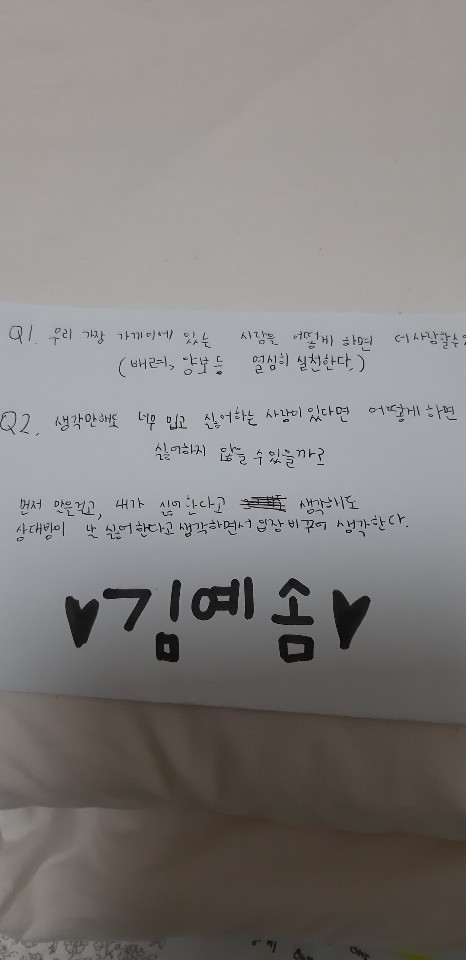 Q1. 우리 가장 가까이에 있는 사람을 어떻게 하면 더 사랑할수
(배려, 양보 등 열심히 실천한다.)
Q2. 생각만해도 너무 밉고 싫어하는 사람이 있다면 어떻게 하면
싫어하지 않을 수 있을까?
먼저 내가 싫어한다고 생각해도
상대방이 난 싫어한다고 생각하면서 입장 바꾸어 생각한다.
♥김예솜♥